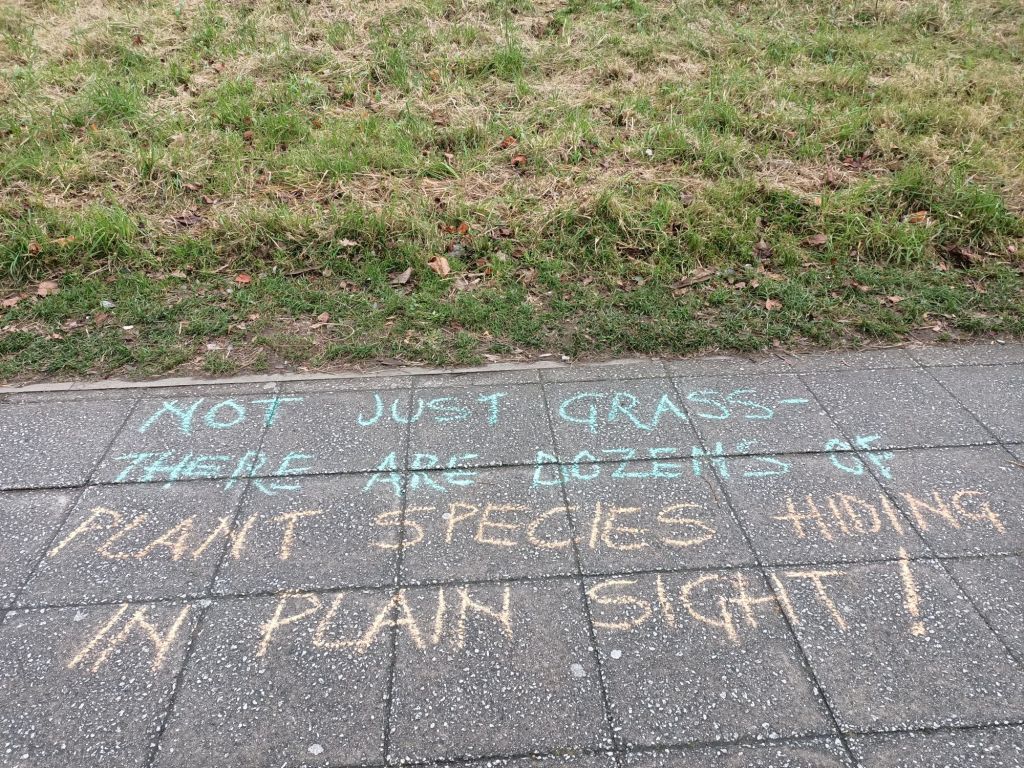 NOT JUST GRASS-
THERE ARE DOZENS OF
PLANT SPECIES HIDING
IN PLAIN SIGHT!